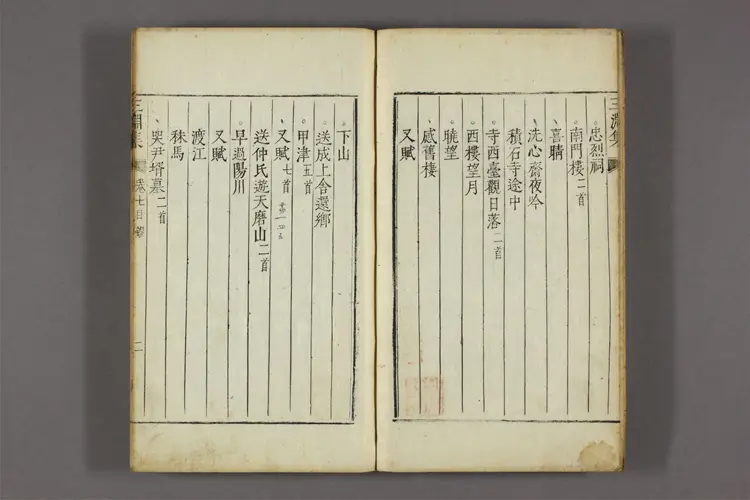 三淵集
忠烈祠
南門樓二首
喜晴
洗心齋夜吟
積石寺途中
寺西臺觀日落二首
西樓望月
曉望
感舊樓
又賦
下山
送成上舍還鄉
甲津五首
又賦七首
送仲氏遊天磨山二首
早過陽川
又賦
渡江
秣馬
哭尹壻墓二首
三淵集 卷七目錄 二